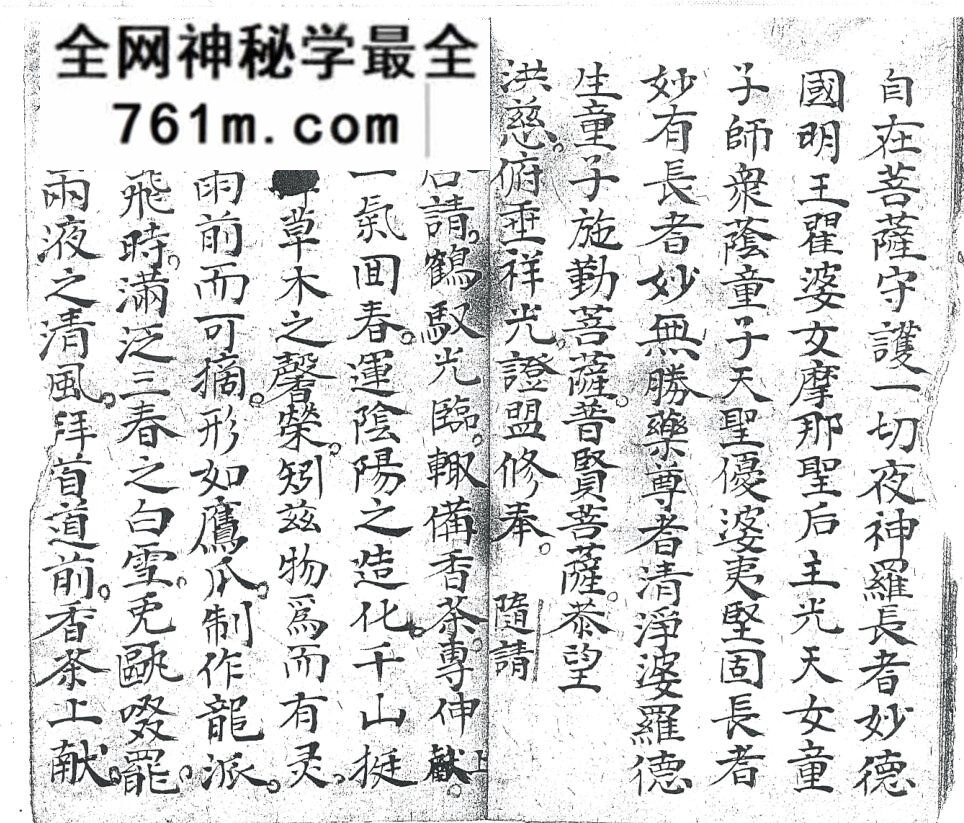 全网神秘学最全
761m.com
自在菩薩守護一切夜神羅長者妙德
國明王瞿婆女摩那聖后主光天女童
子師衆蔭童子天聖優婆夷堅固長者
妙有長者妙無勝藥尊者清淨婆羅德
生童子施勤菩薩。普賢菩薩。恭望
洪慈。俯垂祥光。證盟修奉。隨請
請。鶴馭光臨。輙備香茶。專伸上獻。
一氣囬春。運陰陽之造化。千山挺
草木之馨榮。矧兹物爲而有灵。
雨前而可摘。形如鷹爪。制作龍派。
飛時。滿泛三春之白雪。兎甌啜罷。
兩液之清風。拜首道前。香茶上献。